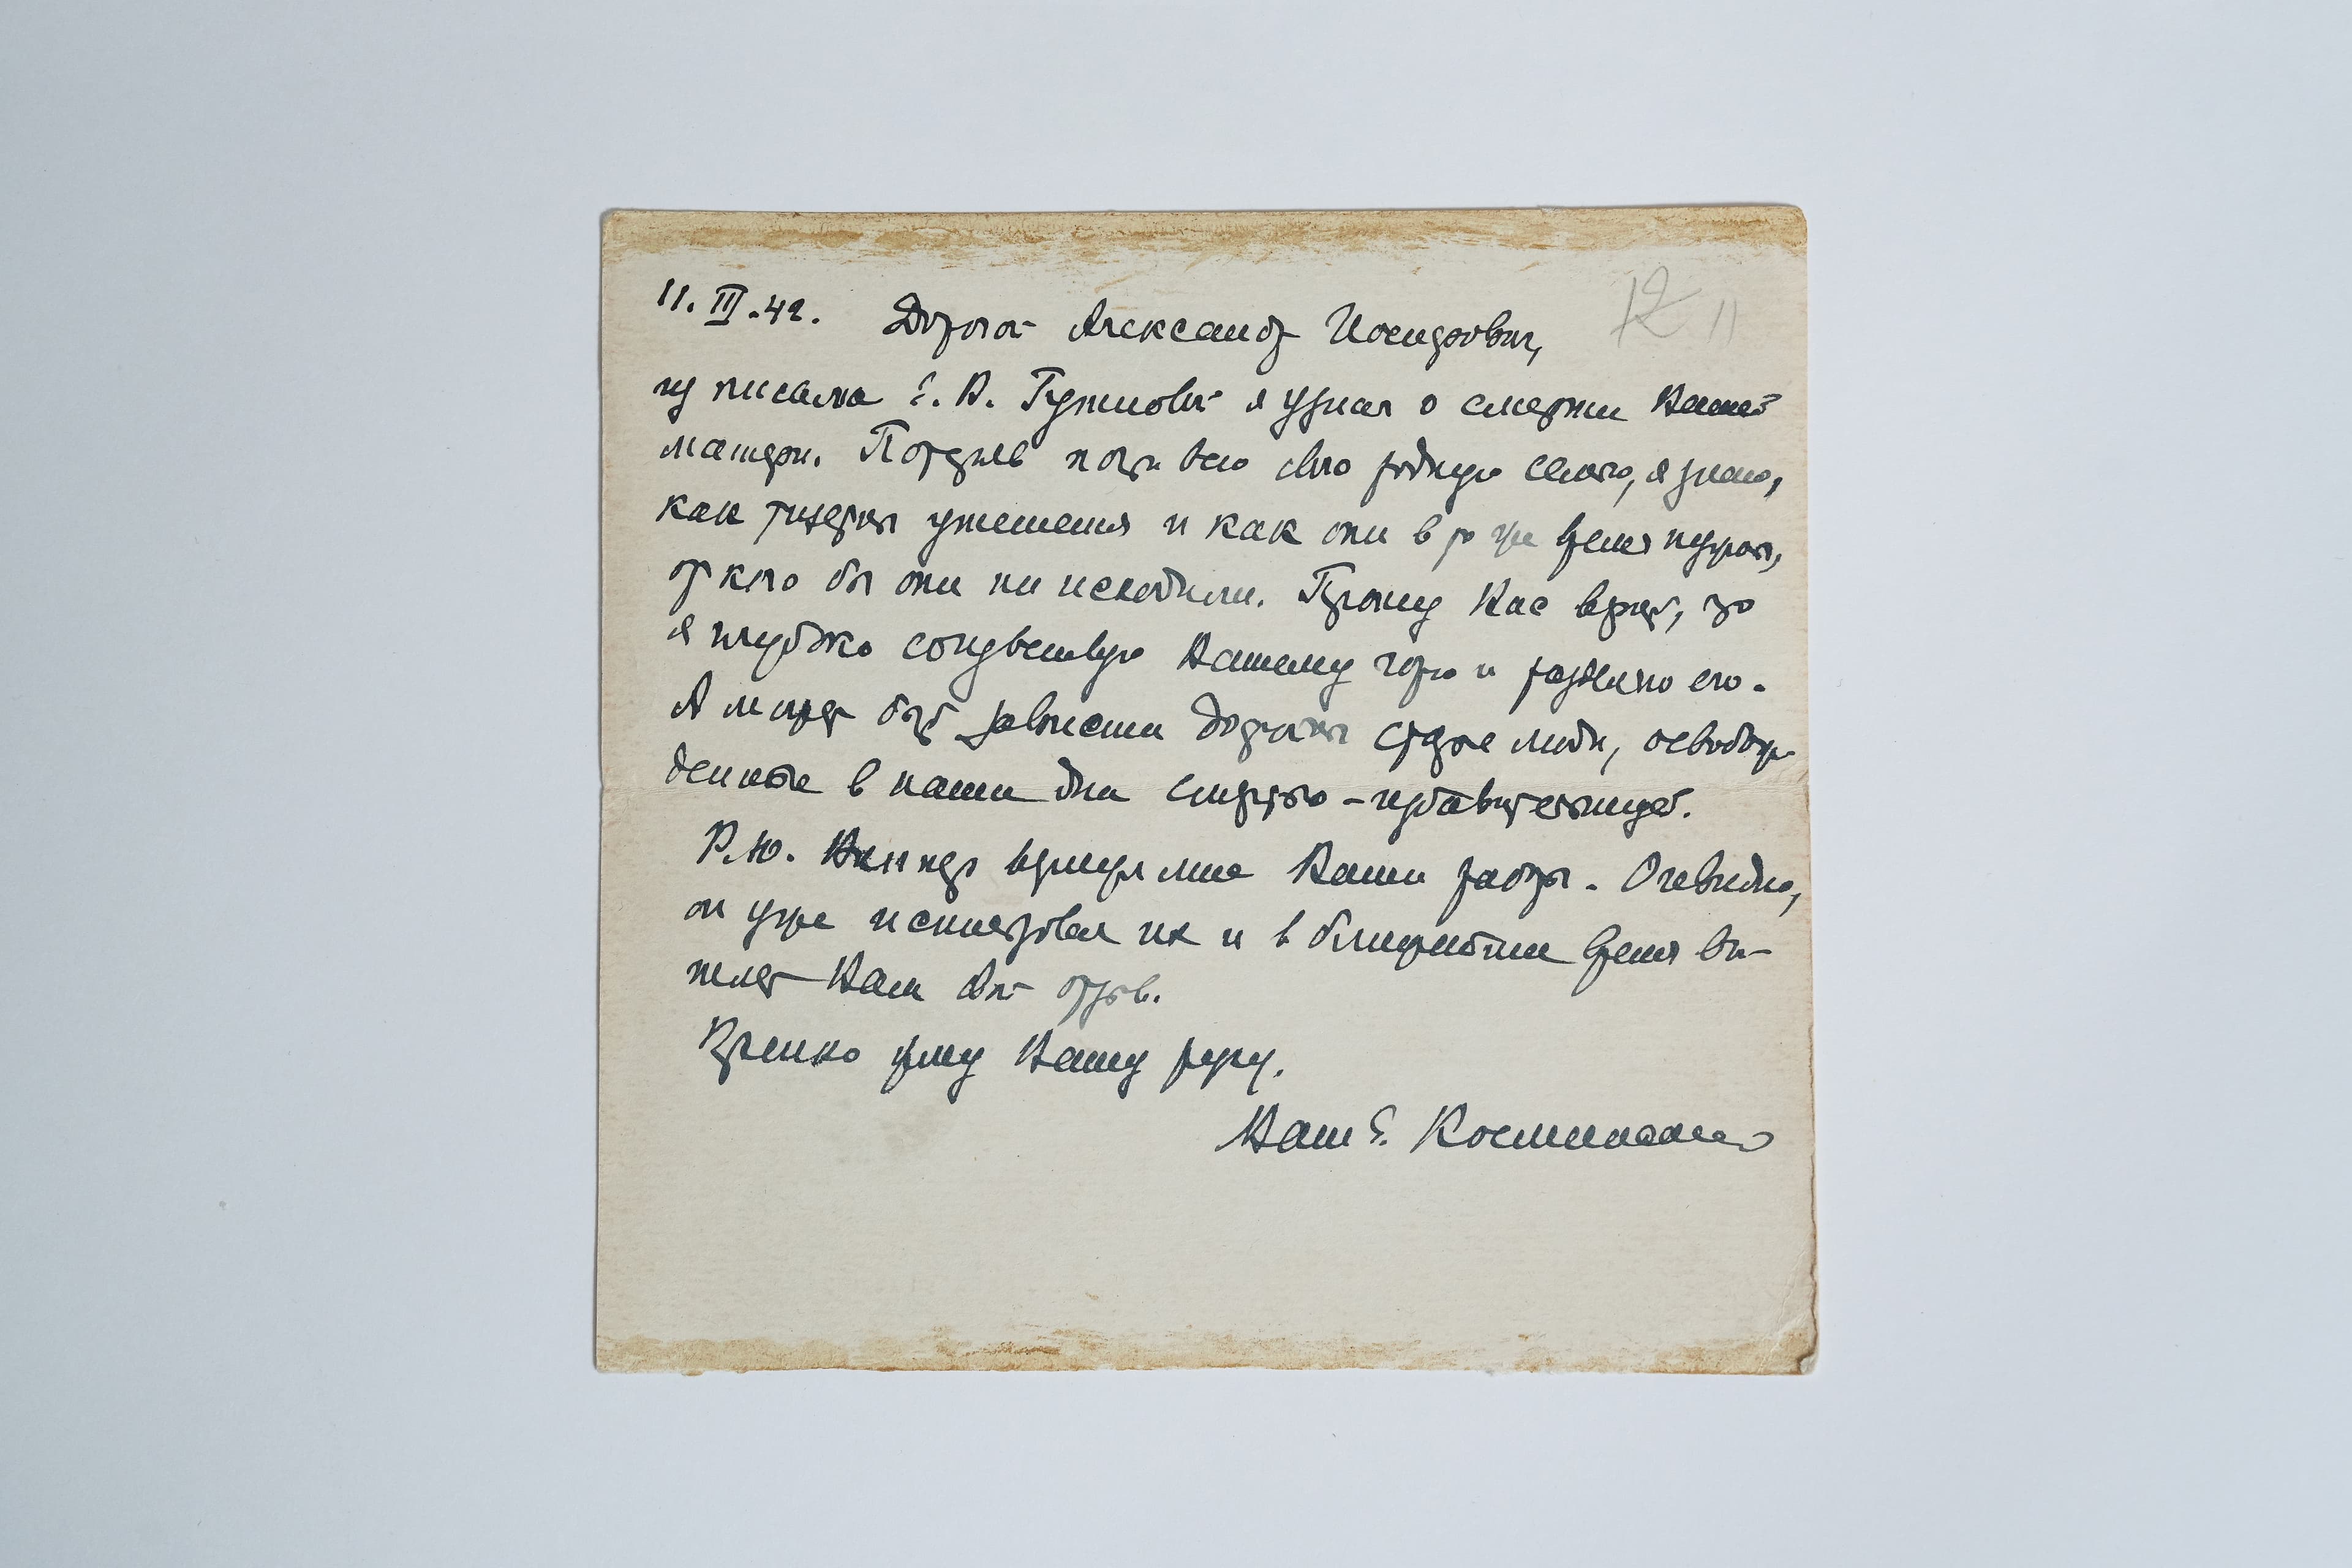 11.III.42. Дорогой Александр Иосифович, 12 11
из письма Е. В. Гутновой я узнал о смерти Вашей
матери. Потеряв почти всю свою родную семью, я знаю,
как тщетны утешения и как они в то же время нужны,
от кого бы они ни исходили. Прошу Вас верить, что
я глубоко сочувствую Вашему горю и разделяю его.
А может быть зависти достойны старые люди, освобож-
денные в наши дни смертью-избавительницей.
Р.Ю. Виппер вернул мне Ваши работы. Очевидно,
он уже использовал их и в ближайшее время вы-
шлет Вам свой отзыв.
Крепко жму Вашу руку.
Ваш Е. Косминский